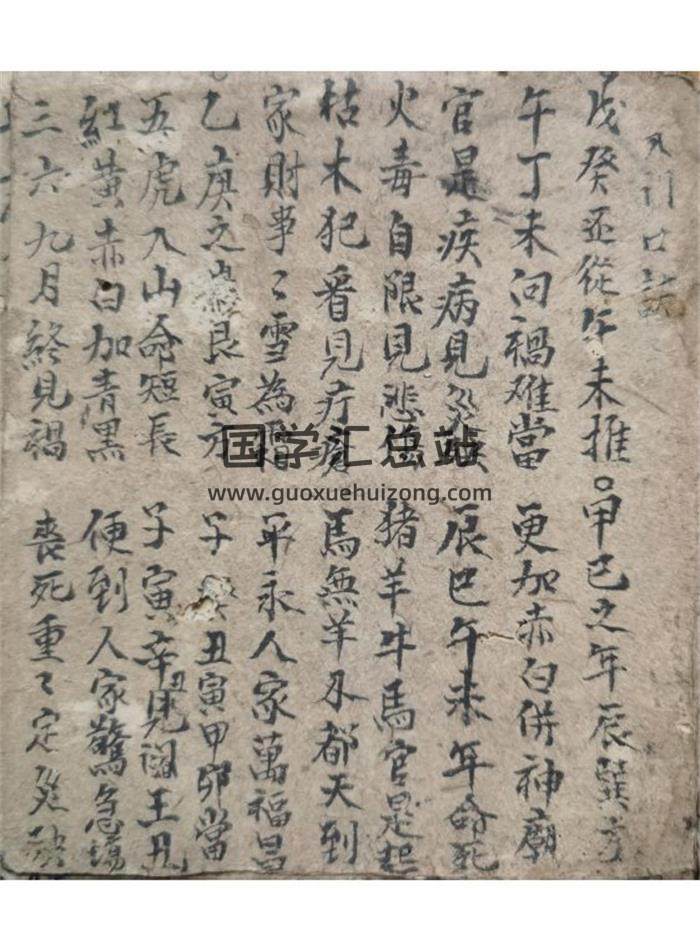 又訂口訣
戊癸巫從午未推。甲己之年辰巽方
午丁未问禍难當 更加赤白併神廟
官是疾病見 辰巳午未年命死
火毒自限見悲傷 猪羊牛馬官是起
枯木犯看見疔瘡 馬無羊及都天到
家財事〻雪為霜 平永人家萬福昌
乙庚之歲艮寅方 子 丑寅甲卯當
五虎入山命短長 子寅辛丑見閻王
紅黄赤白加青黑 便到人家驚急塲
三六九月終見禍 喪死重〻定
国学汇总站
www.guoxuehuizong.com